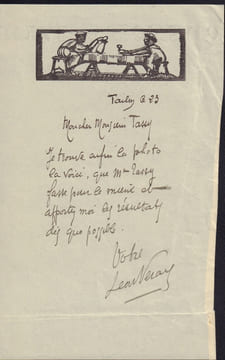 le 23
Mon cher Monsieur Tassy
Je trouve enfin la photo
la voici, que Mme Tassy
fasse pour le mieux et
apportez moi les résultats
dès que possible.
Votre